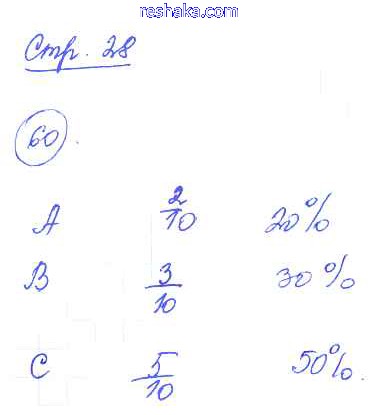 reshaka.com
Стр. 28
60.
A 2/10 20%
B 3/10 30%
C 5/10 50%.